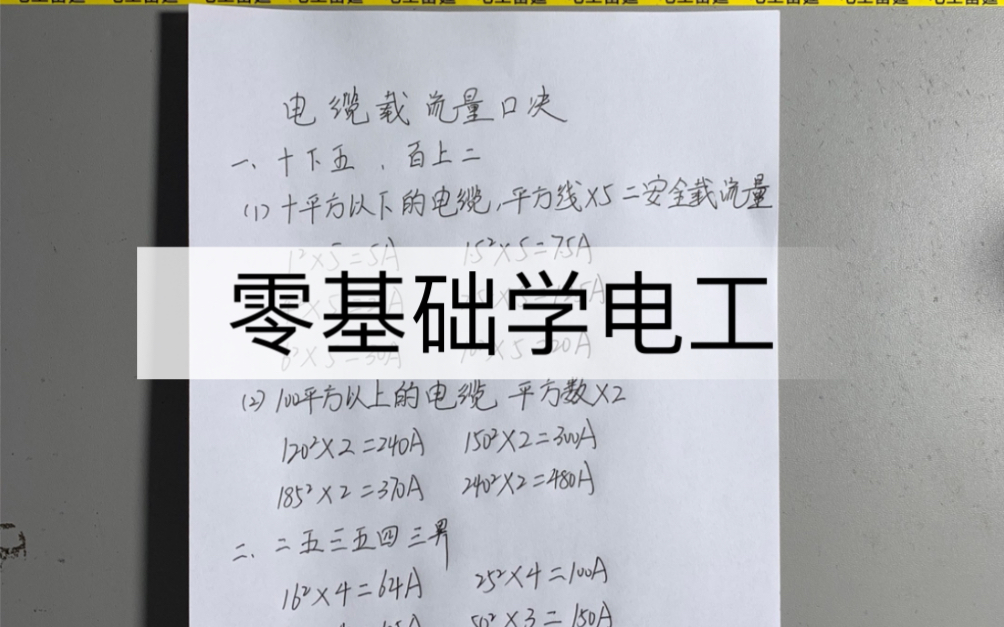 电缆载流量口决
一、十下五、百上二
(1)十平方以下的电缆,平方线×5=安全载流量
1²×5=5A 1.5²×5=7.5A
零基础学电工
(2)100平方以上的电缆 平方数×2
120²×2=240A 150²×2=300A
185²×2=370A 240²×2=480A
二、二五三五四三界
16²×4=64A 25²×4=100A
50²×3=150A